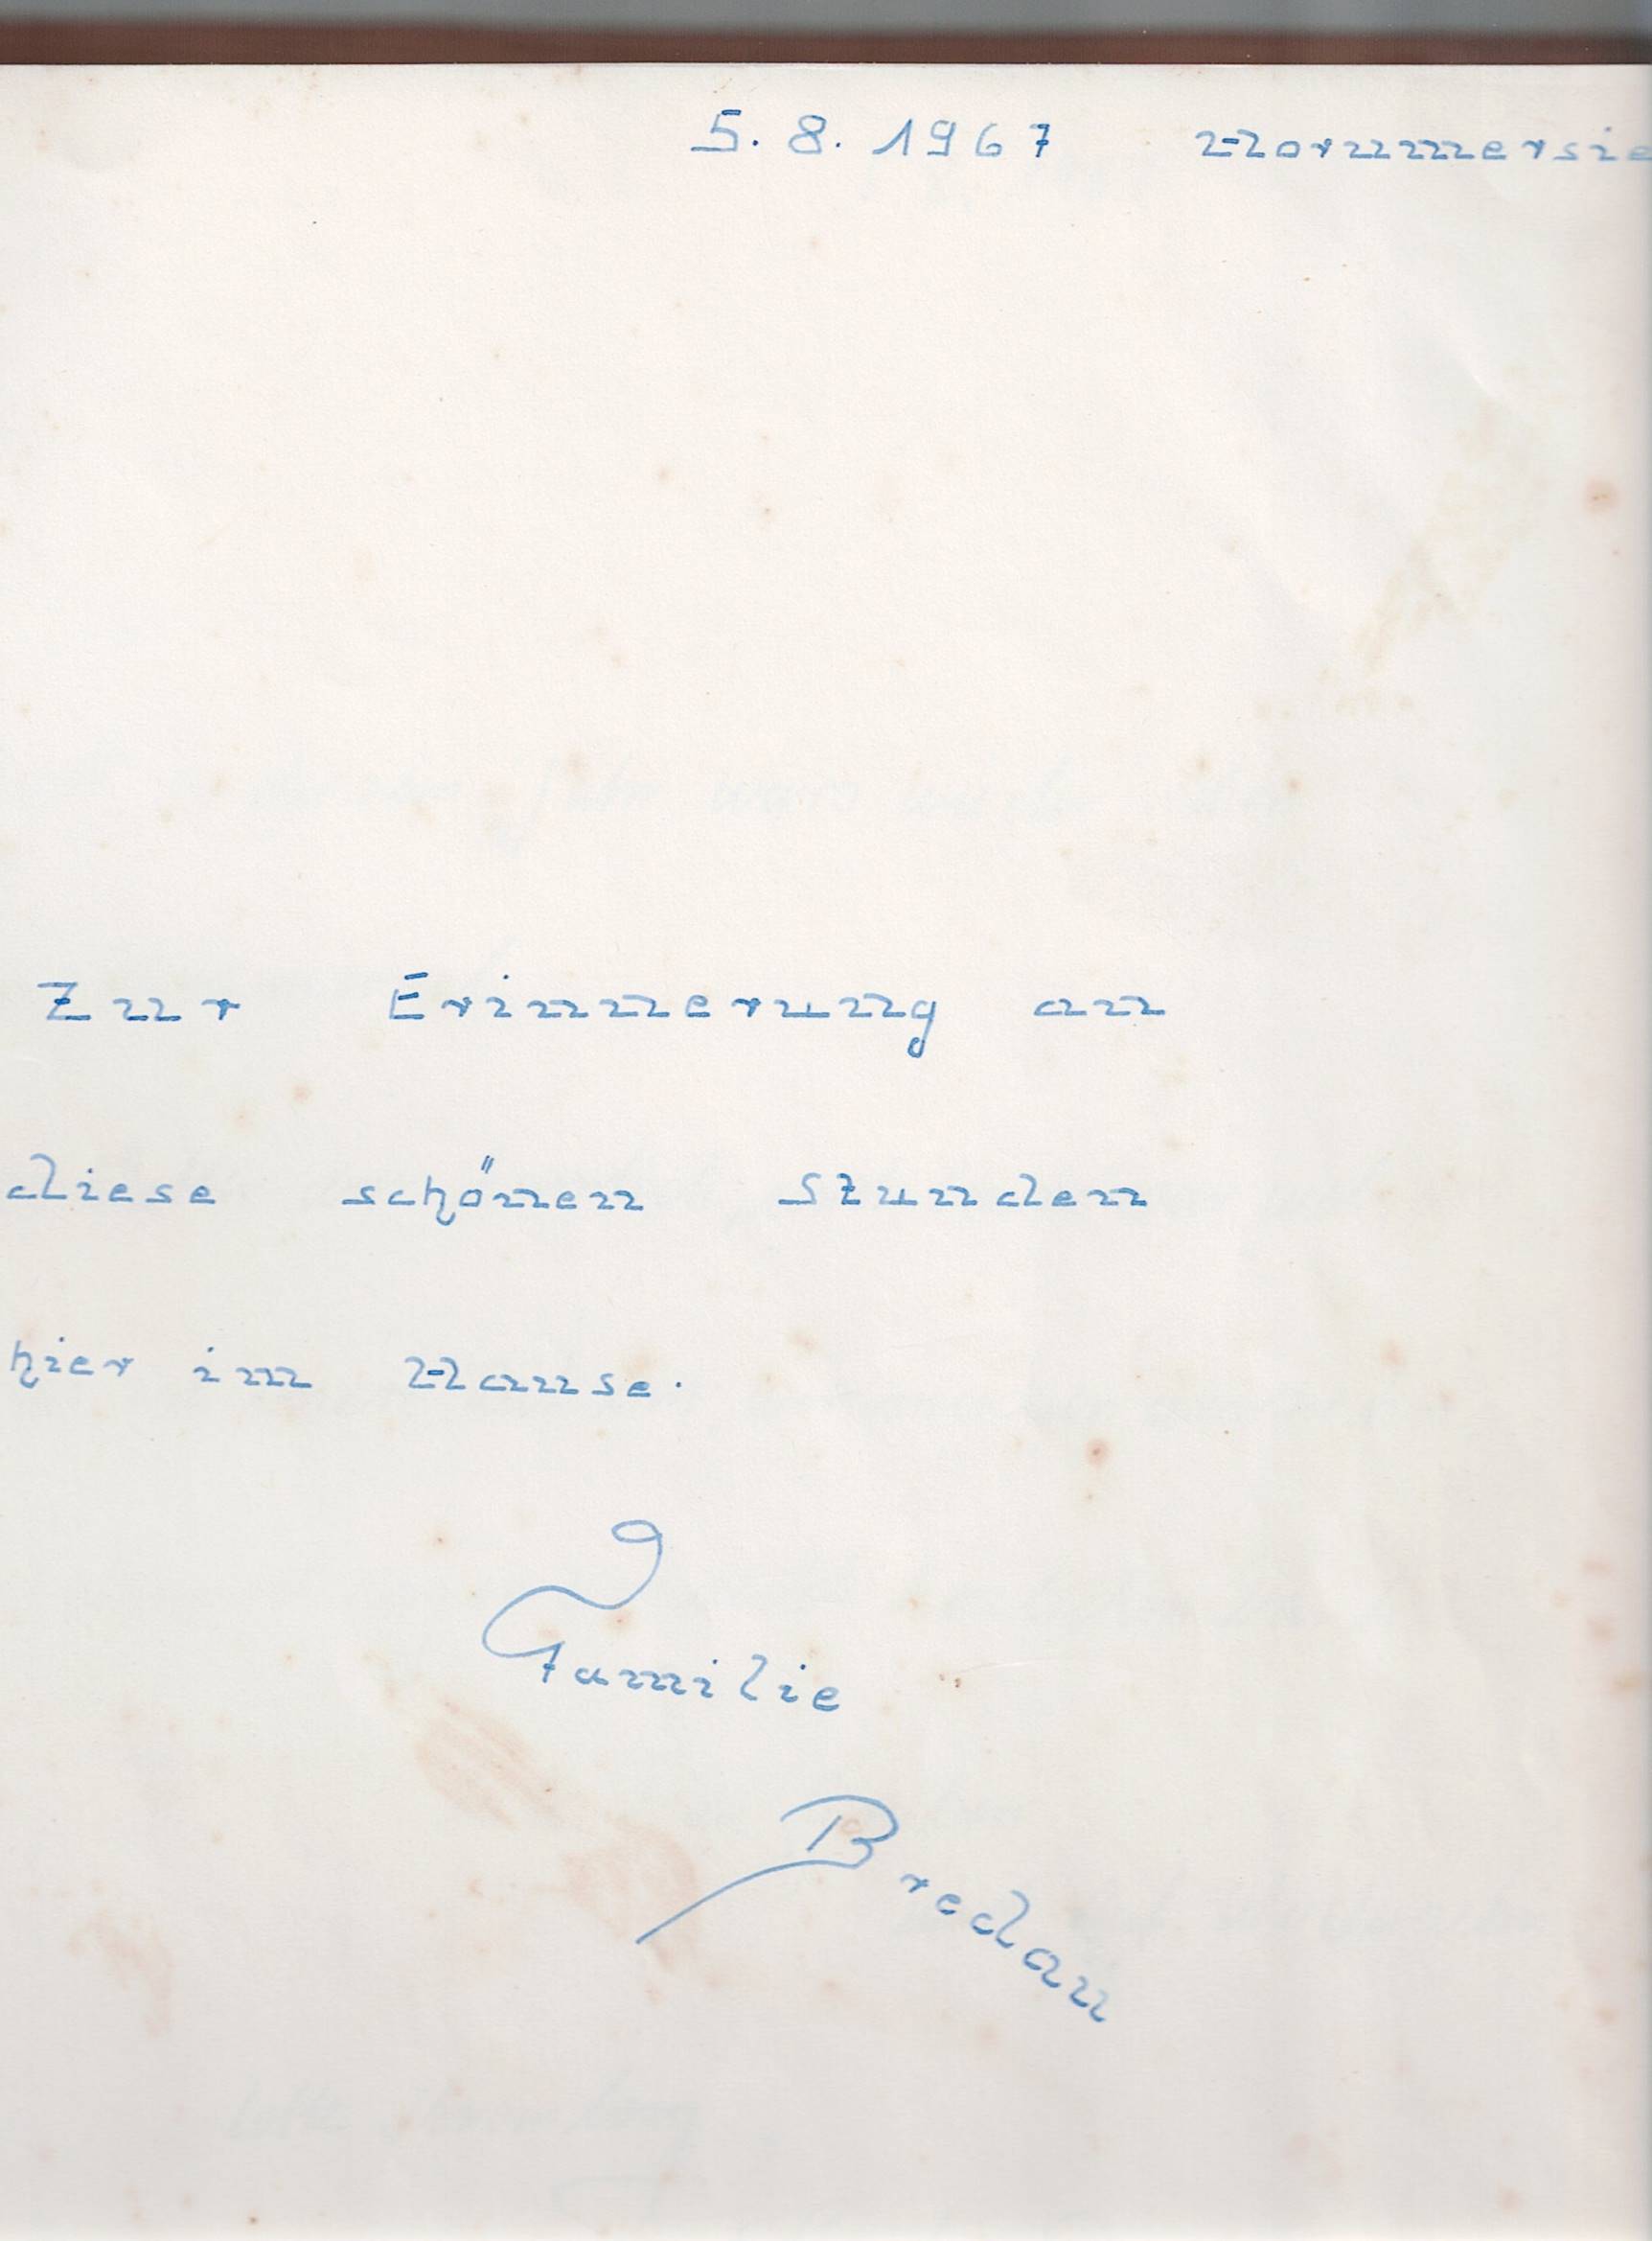 5. 8. 1967 Horumersie
Zur Erinnerung an
diese schönen Stunden
hier im Hause.
Familie
Bredau